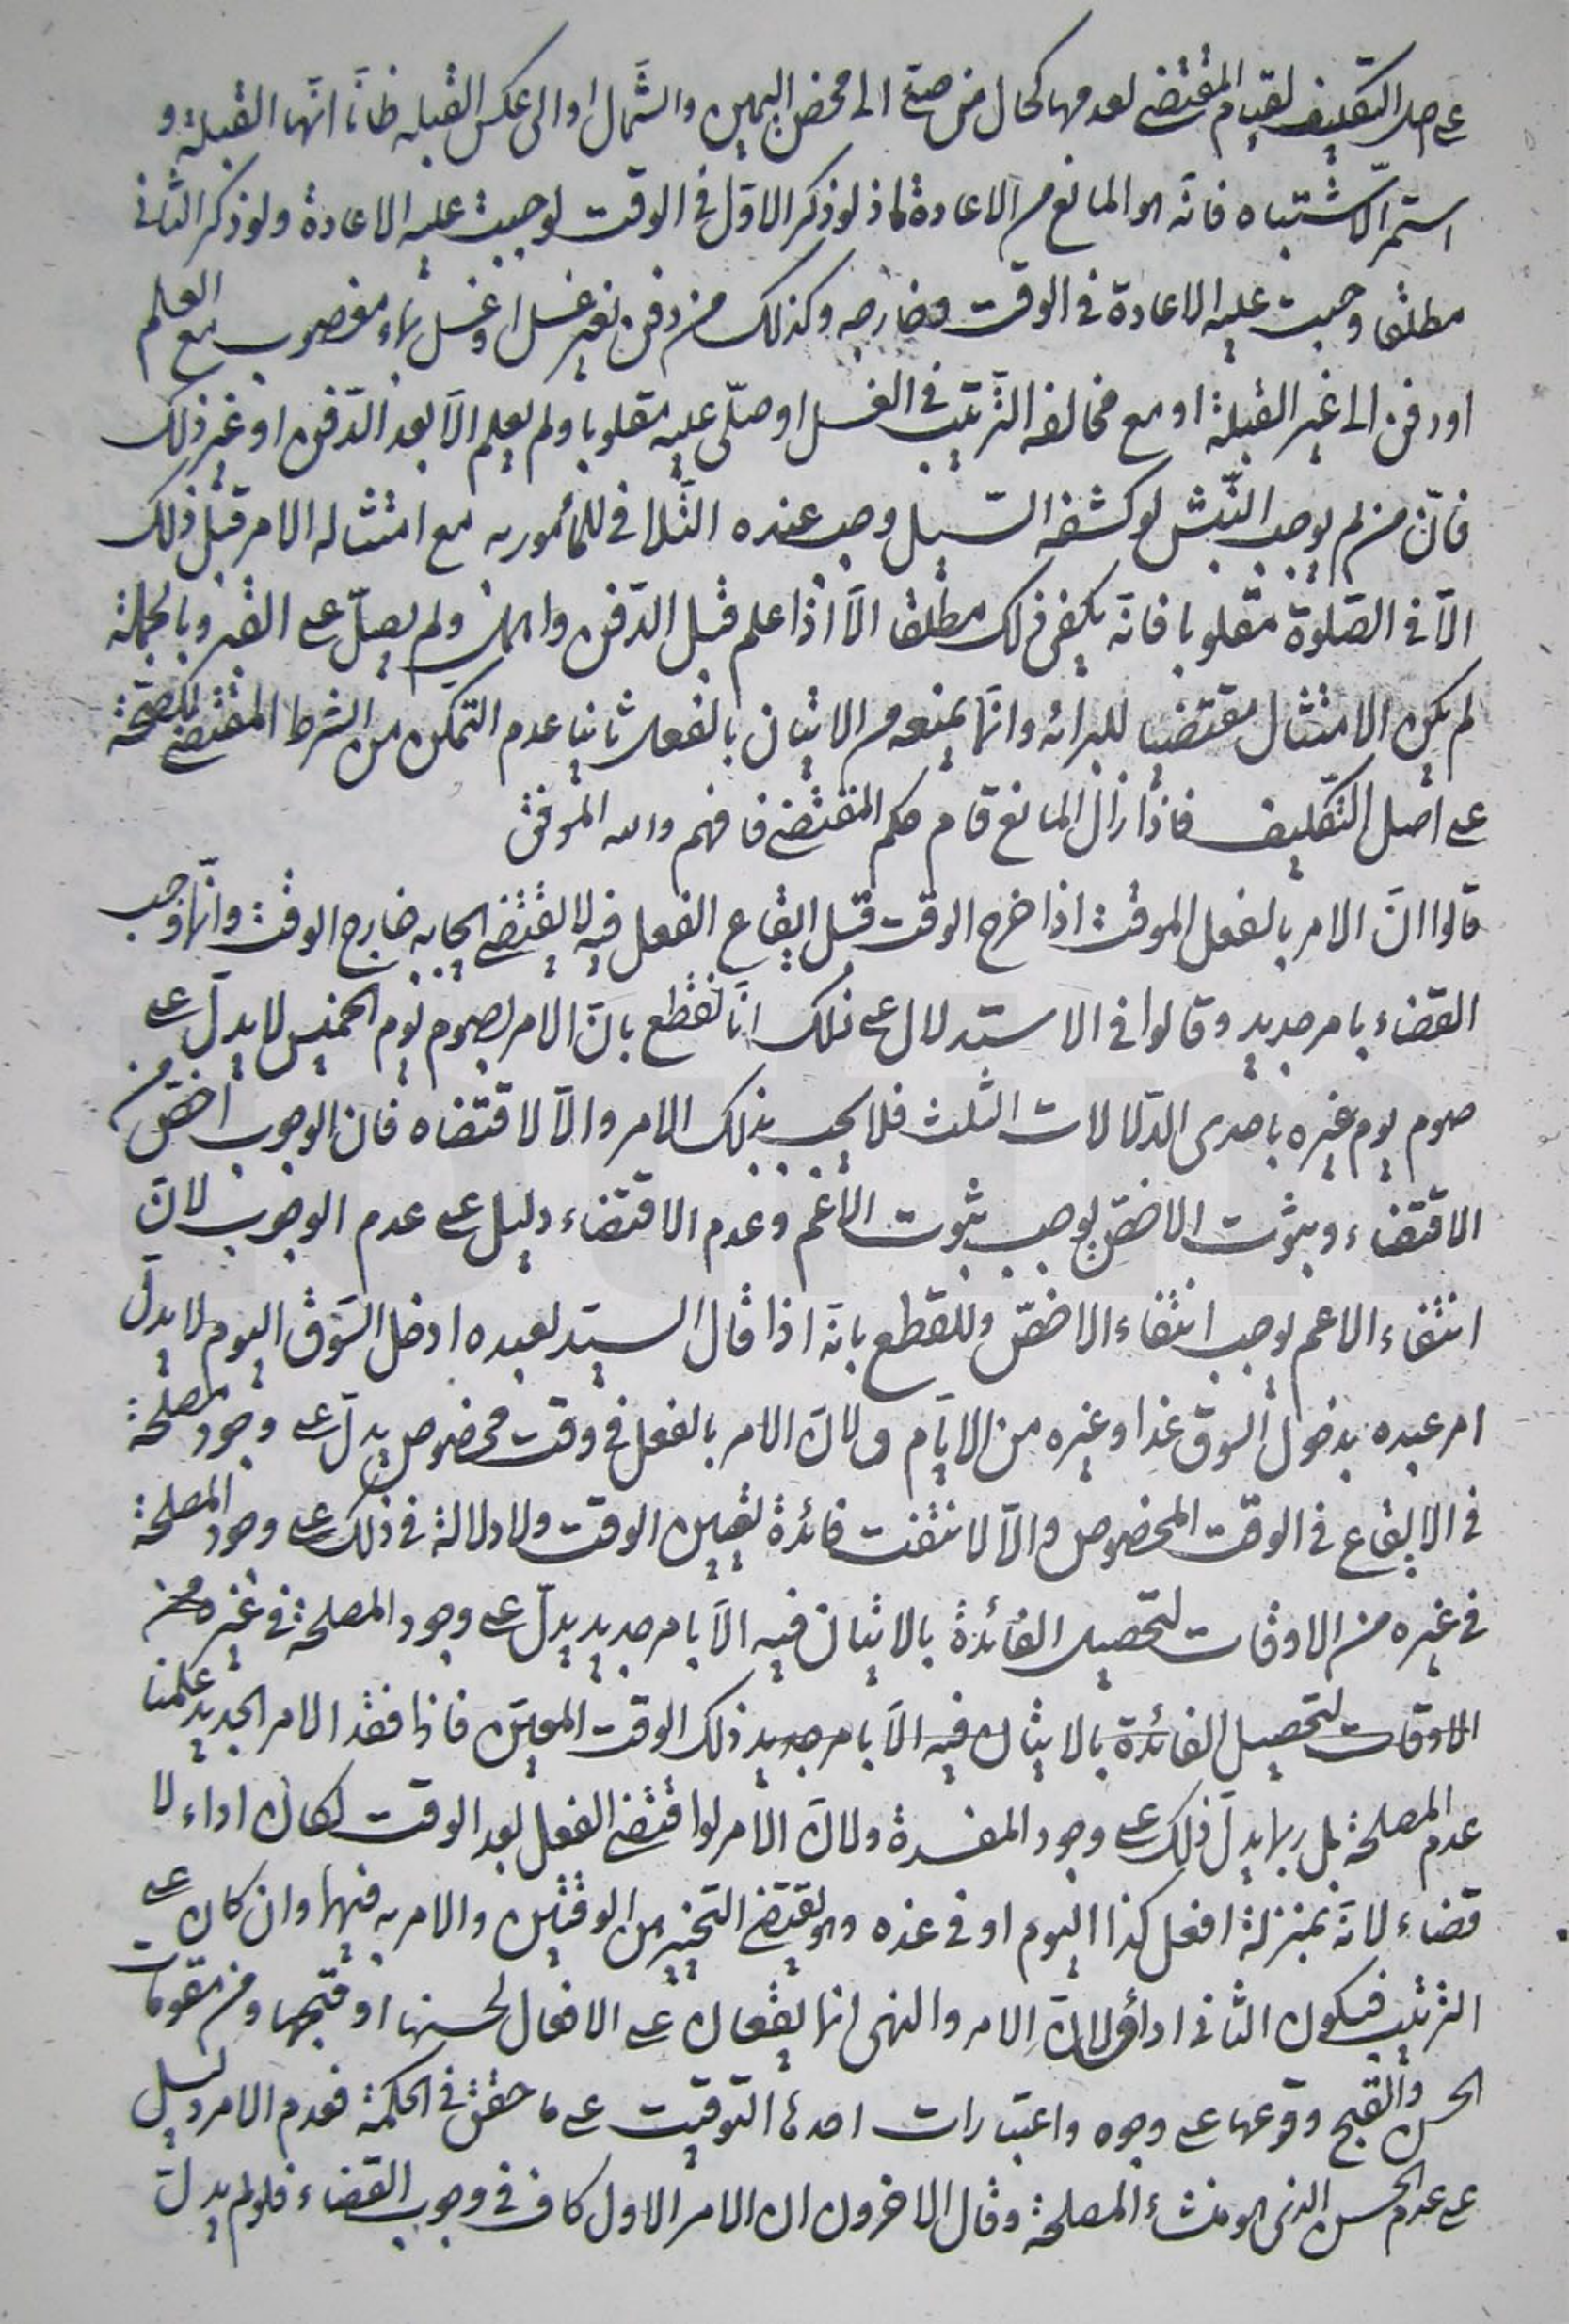 على اصل التكليف لقيام المقتضى لعدمها كحال من صلى الى محض اليمين والشّمال او الى عكس القبله ظانّا انّها القبلة و
استمرّ الاشتباه فانّه هو المانع من الاعادة اذ لو ذكر الاوّل فى الوقت لوجبت عليه الاعادة ولو ذكر الثانى
مطلقا وجبت عليه الاعادة فى الوقت وخارجه وكذلك من دفن بغير غسل او غسل بماء مغصوب مع العلم
او دفن الى غير القبلة او مع مخالفه التّرتيب فى الغسل او صلّى عليه مقلوبا ولم يعلم الّا بعد الدّفن او غير ذلك
فانّ من لم يوجب النّبش لو كشفه السّيل وجب عنده التّلافى للمأمور به مع امتثاله الامر قبل ذلك
الّا فى الصّلوة مقلوبا فانّه يكفى ذلك مطلقا الّا اذا علم قبل الدّفن واهمل ولم يصلّ على القبر وبالجملة
لم يكن الامتثال مقتضيا للبرائه وانّما يمنعه من الاتيان بالفعل ثانيا عدم التمكن من الشرط المقتضى للصّحّة
على اصل التّكليف فاذا زال المانع قام حكم المقتضى فافهم والله الموفق
قالوا انّ الامر بالفعل الموقت اذا خرج الوقت قبل ايقاع الفعل فيه لا يقتضى ايجابه خارج الوقت وانّما وجب
القضاء بامر جديد وقالوا فى الاستدلال على ذلك انّا نقطع بانّ الامر بصوم يوم الخميس لا يدلّ على
صوم يوم غيره باحدى الدّلالات الثلث فلا يجب بذلك الامر والّا لاقتضاه فان الوجوب اخصّ من
الاقتضاء وثبوت الاخصّ يوجب ثبوت الاعم وعدم الاقتضاء دليل على عدم الوجوب لانّ
انتفاء الاعم يوجب انتفاء الاخصّ وللقطع بانّه اذا قال السيّد لعبده ادخل السّوق اليوم لا يدلّ
امر عبده بدخول السوق غدا وغيره من الايّام ولانّ الامر بالفعل فى وقت مخصوص يدلّ على وجود مصلحة
فى الايقاع فى الوقت المخصوص والّا لانتفت فائدة تعيين الوقت ولا دلالة فى ذلك على وجود المصلحة
فى غيره من الاوقات لتحصيل الفائدة بالاتيان فيه الّا بامر جديد يدلّ على وجود المصلحة فى غيره من
الاوقات لتحصيل الفائدة بالاتيان فيه الّا بامر جديد ذلك الوقت المعيّن فاذا فقد الامر الجديد علمنا
عدم المصلحة بل ربما يدلّ ذلك على وجود المفسدة ولانّ الامر لو اقتضى الفعل بعد الوقت لكان اداء لا
قضاء لانّه بمنزلة افعل كذا اليوم او فى غده وهو يقتضى التخيير بين الوقتين والامر به فيهما وان كان على
الترتيب فيكون الثانى اداء ولانّ الامر والنهى انما يقعان على الافعال لحسنها او قبحها ومن مقومات
الحسن والقبح وقوعها على وجوه واعتبارات احدها التوقيت على ما حقق فى الحكمة فعدم الامر دليل
على عدم الحسن الذى هو منشأ المصلحة وقال الاخرون ان الامر الاول كاف فى وجوب القضاء فلو لم يدلّ